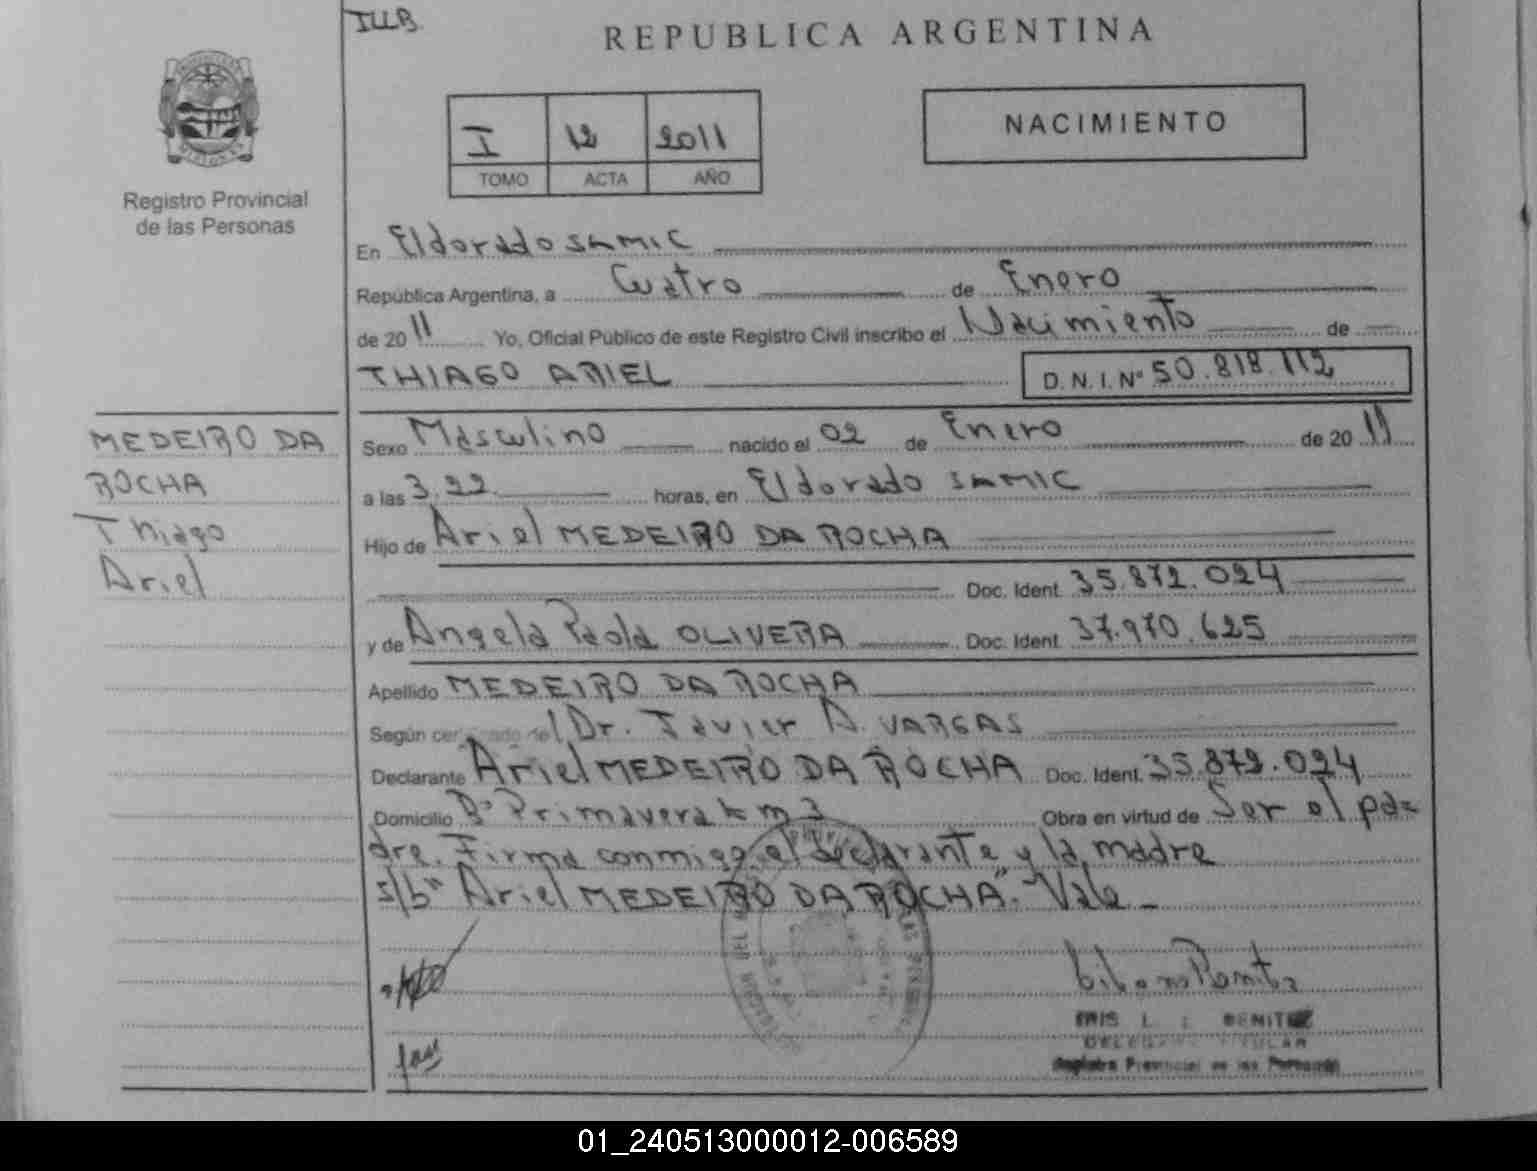 ILLB.
REPUBLICA ARGENTINA
MISIONES
Registro Provincial
de las Personas
I 12 2011
TOMO ACTA AÑO
NACIMIENTO
En Eldorado SAMIC
República Argentina, a Cuatro de Enero
de 2011 Yo, Oficial Público de este Registro Civil inscribo el Nacimiento de
THIAGO ARIEL D.N.I. Nº 50.818.112
MEDEIRO DA
ROCHA
Thiago
Ariel
Sexo Masculino nacido el 02 de Enero de 2011
a las 3,22 horas, en Eldorado SAMIC
Hijo de Ariel MEDEIRO DA ROCHA
Doc. Ident. 35.872.024
y de Angela Paola OLIVERA Doc. Ident. 37.970.625
Apellido MEDEIRO DA ROCHA
Según certificado del Dr. Javier A. VARGAS
Declarante Ariel MEDEIRO DA ROCHA Doc. Ident. 35.872.024
Domicilio Bº Primavera km 3 Obra en virtud de Ser el pa=
dre. Firma conmigo el declarante y la madre
s/b "Ariel MEDEIRO DA ROCHA". Vale_
IRIS L. BENITEZ
DELEGADA TITULAR
Registro Provincial de las Personas
01_240513000012-006589